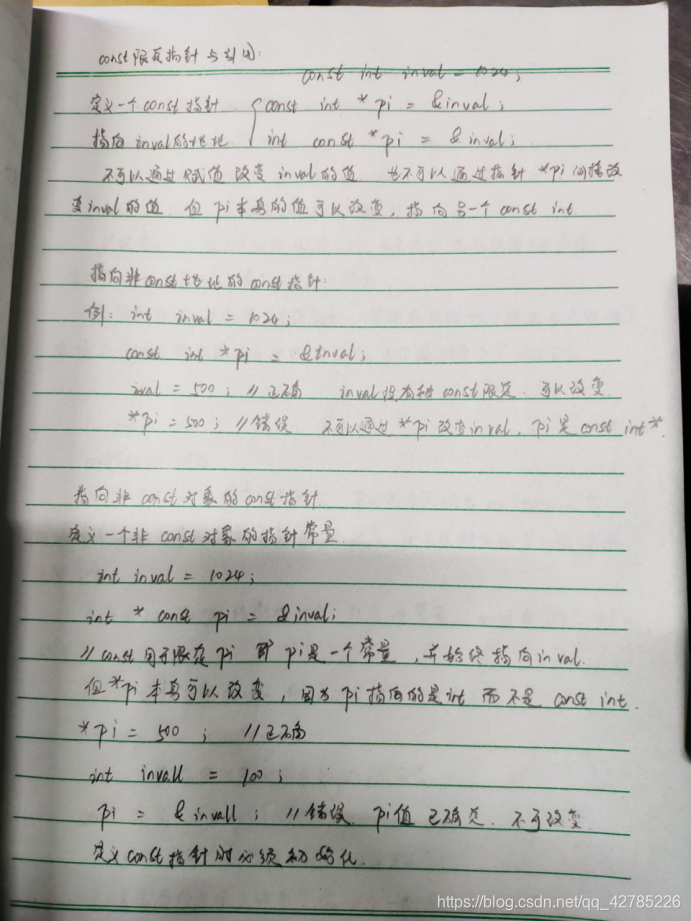 const限定指针与引用:
const int inval = 1024;
定义一个const指针 { const int *pi = &inval;
指向inval的地址 int const *pi = &inval;
不可以通过赋值改变inval的值 也不可以通过指针*pi间接改
变inval的值 但pi本身的值可以改变,指向另一个const int.
指向非const地址的const指针:
例: int inval = 1024;
const int *pi = &inval;
ival = 500; //正确 inval没有被const限定,可以改变.
*pi = 500; //错误 不可以通过*pi改变inval,pi是const int*.
指向非const对象的const指针
定义一个非const对象的指针常量
int inval = 1024;
int * const pi = &inval;
//const用于限定pi 即pi是一个常量,并始终指向inval.
但*pi本身可以改变,因为pi指向的是int而不是const int.
*pi = 500; //正确
int invall = 100;
pi = &invall; //错误 pi值已确定.不可改变.
定义const指针时必须初始化.
https://blog.csdn.net/qq_42785226